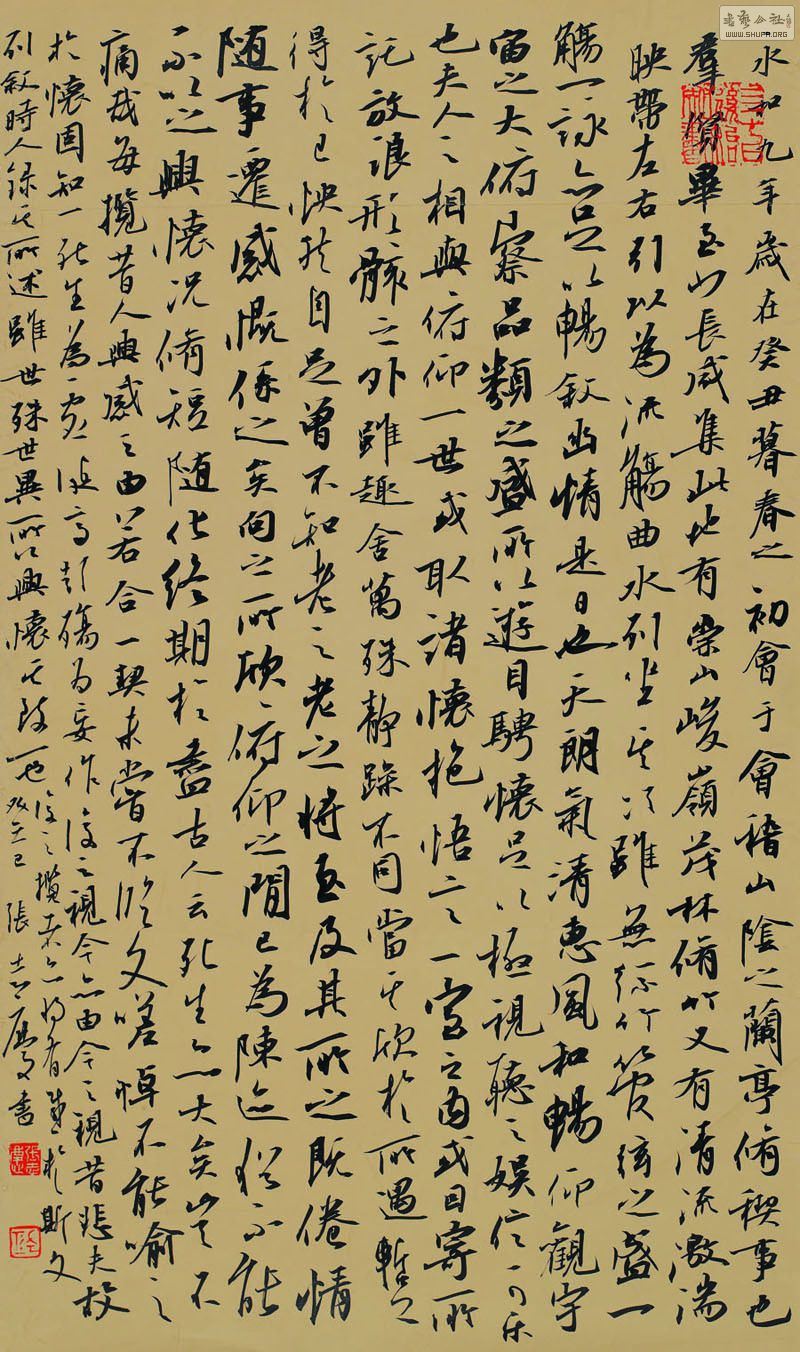 永和九年歲在癸丑暮春之初會于會稽山陰之蘭亭脩稧事也
羣賢畢至少長咸集此地有崇山峻嶺茂林脩竹又有清流激湍
映帶左右引以為流觴曲水列坐其次雖無絲竹管絃之盛一
觴一詠亦足以暢敘幽情是日也天朗氣清惠風和暢仰觀宇
宙之大俯察品類之盛所以遊目騁懷足以極視聽之娛信可樂
也夫人之相與俯仰一世或取諸懷抱悟言一室之內或因寄所
託放浪形骸之外雖趣舍萬殊靜躁不同當其欣於所遇暫
得於己快然自足曾不知老之老之將至及其所之既倦情
随事遷感慨係之矣向之所欣俯仰之閒已為陳迹猶不能
不以之興懷況脩短随化終期於盡古人云死生亦大矣豈不
痛哉每攬昔人興感之由若合一契未嘗不臨文嗟悼不能喻之
於懷固知一死生為虛誕齊彭殤為妄作後之視今亦由今之視昔悲夫故
列敘時人錄其所述雖世殊世異所以興懷其致一也
後之攬者亦將有感於斯文
癸巳 張志慶書
書藝公社
WWW.SHUFA.ORG